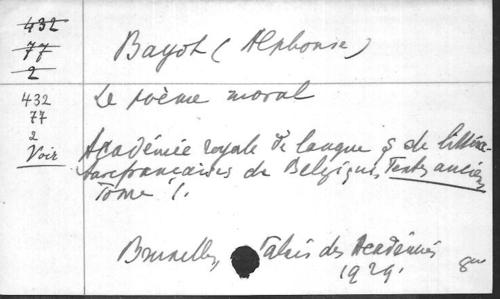 432
77
2
Bayot (Alphonse)
432
77
2
Voir
Le poème moral
Académie royale de langue & de littéra-
ture françaises de Belgique, Textes anciens
Tome I.
Bruxelles, Palais des Académies
1929.
8vo